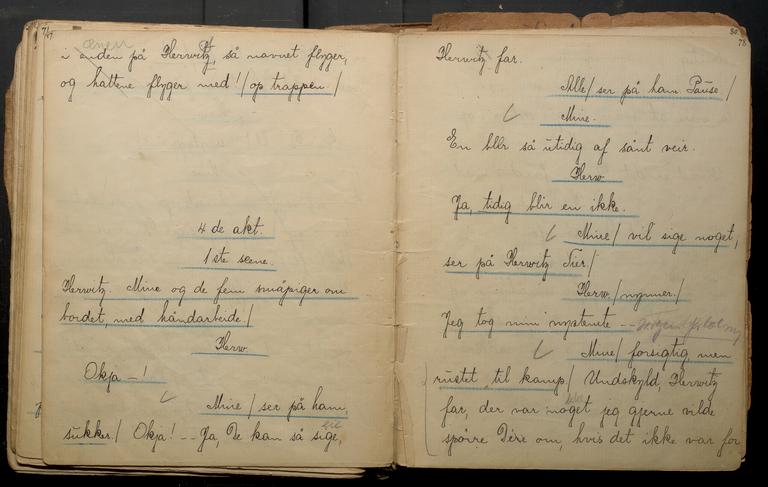 79.
i enden på Herwitz, så navnet flyger,
og hattene flyger med! / op trappen /
4 de akt.
1 ste scene.
Herwitz. Mine og de fem småpiger om
bordet, med håndarbeide /
Herw.
Okja – !
Mine / ser på ham,
sukker. / Okja! – – Ja, De kan så sige,
80.
78
Herwitz far.
Alle / ser på ham. Pause /
Mine.
En blir så utidig af sånt veir.
Herw.
Ja, tidig blir en ikke.
Mine / vil sige noget,
ser på Herwitz. Tier /
Herw / nynner. /
Jeg tog mine nystenete – –
Mine / forsigtig, men
rustet til kamp. / Undskyld, Herwitz
far, der var noget jeg gjerne vilde
spørre Dere om, hvis det ikke var for